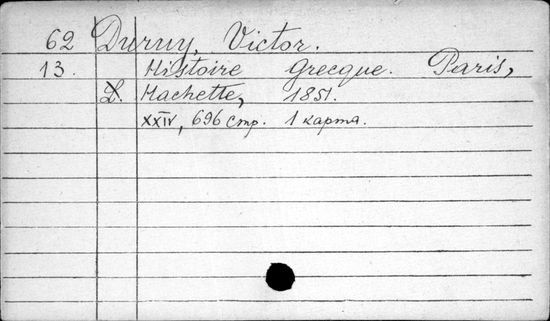 62 Duruy, Victor.
13. Histoire Grecque. Paris,
L. Hachette, 1851.
XXIV, 696 стр. 1 карта.